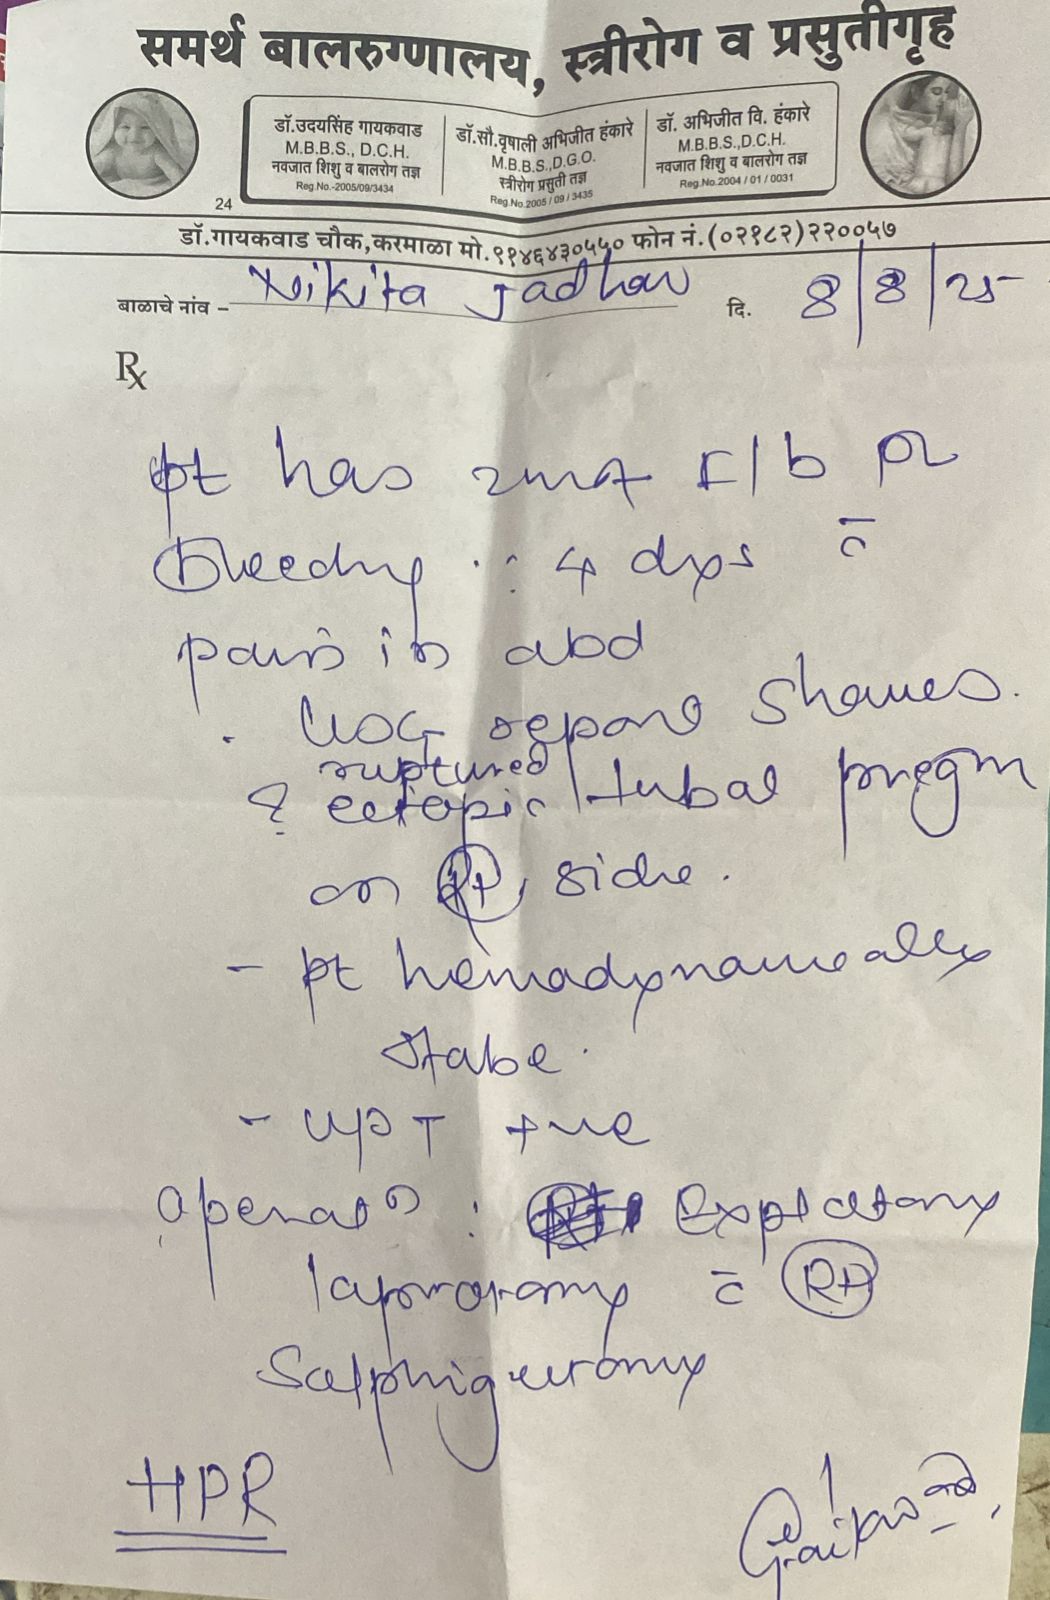 समर्थ बालरुग्णालय, स्त्रीरोग व प्रसुतीगृह
डॉ.उदयसिंह गायकवाड
M.B.B.S., D.C.H.
नवजात शिशु व बालरोग तज्ञ
Reg.No.-2005/09/3434
डॉ.सौ.वृषाली अभिजीत हंकारे
M.B.B.S.,D.G.O.
स्त्रीरोग प्रसुती तज्ञ
Reg.No.2005/09/3435
डॉ. अभिजीत वि. हंकारे
M.B.B.S.,D.C.H.
नवजात शिशु व बालरोग तज्ञ
Reg.No.2004/01/0031
24
डॉ.गायकवाड चौक,करमाळा मो.९१४६४३०५५० फोन नं.(०२१८२)२२००५७
बाळाचे नांव – Nikita Jadhav दि. 8/8/25
Rx
pt has F/b
Bleeding 4 days c̄
pain in abd
. USG report shows.
ruptured
? ectopic / tubal pregn
on Rt side.
– pt hemodynamically
stabe.
– UPT +ve
Operatn : Explatory
laprotomy c̄ Rt
Salphigectomy
HPR
Gaikwad